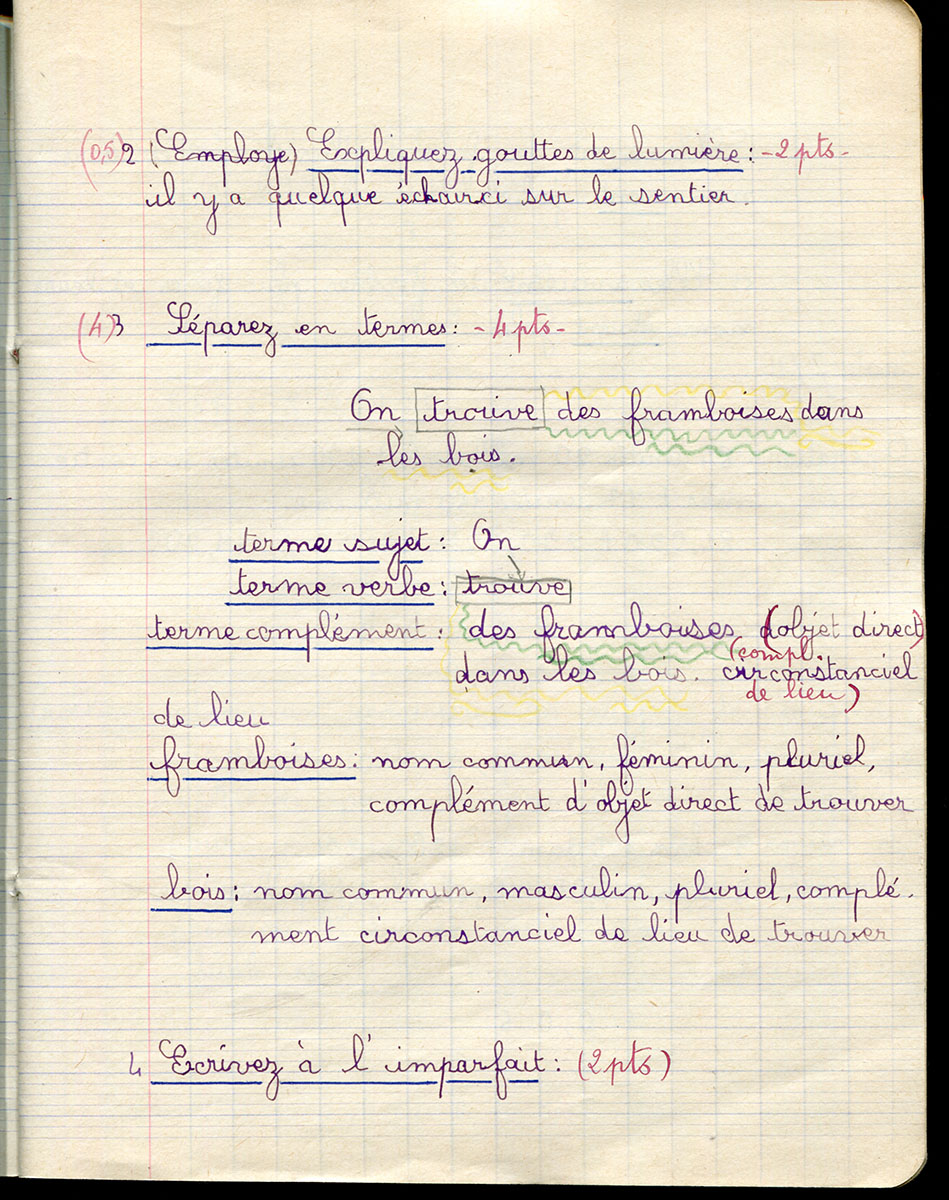 (0,5) 2 (Employe) Expliquez gouttes de lumière : - 2 pts -
il y a quelque éclairci sur le sentier.
(4) 3 Séparez en termes : - 4 pts -
On trouve des framboises dans
les bois.
terme sujet : On
terme verbe : trouve
terme complément : des framboises (objet direct)
(compl.
dans les bois. circonstanciel
de lieu)
de lieu
framboises : nom commun, féminin, pluriel,
complément d'objet direct de trouver
bois : nom commun, masculin, pluriel, complé-
ment circonstanciel de lieu de trouver
4 Ecrivez à l'imparfait : (2 pts)